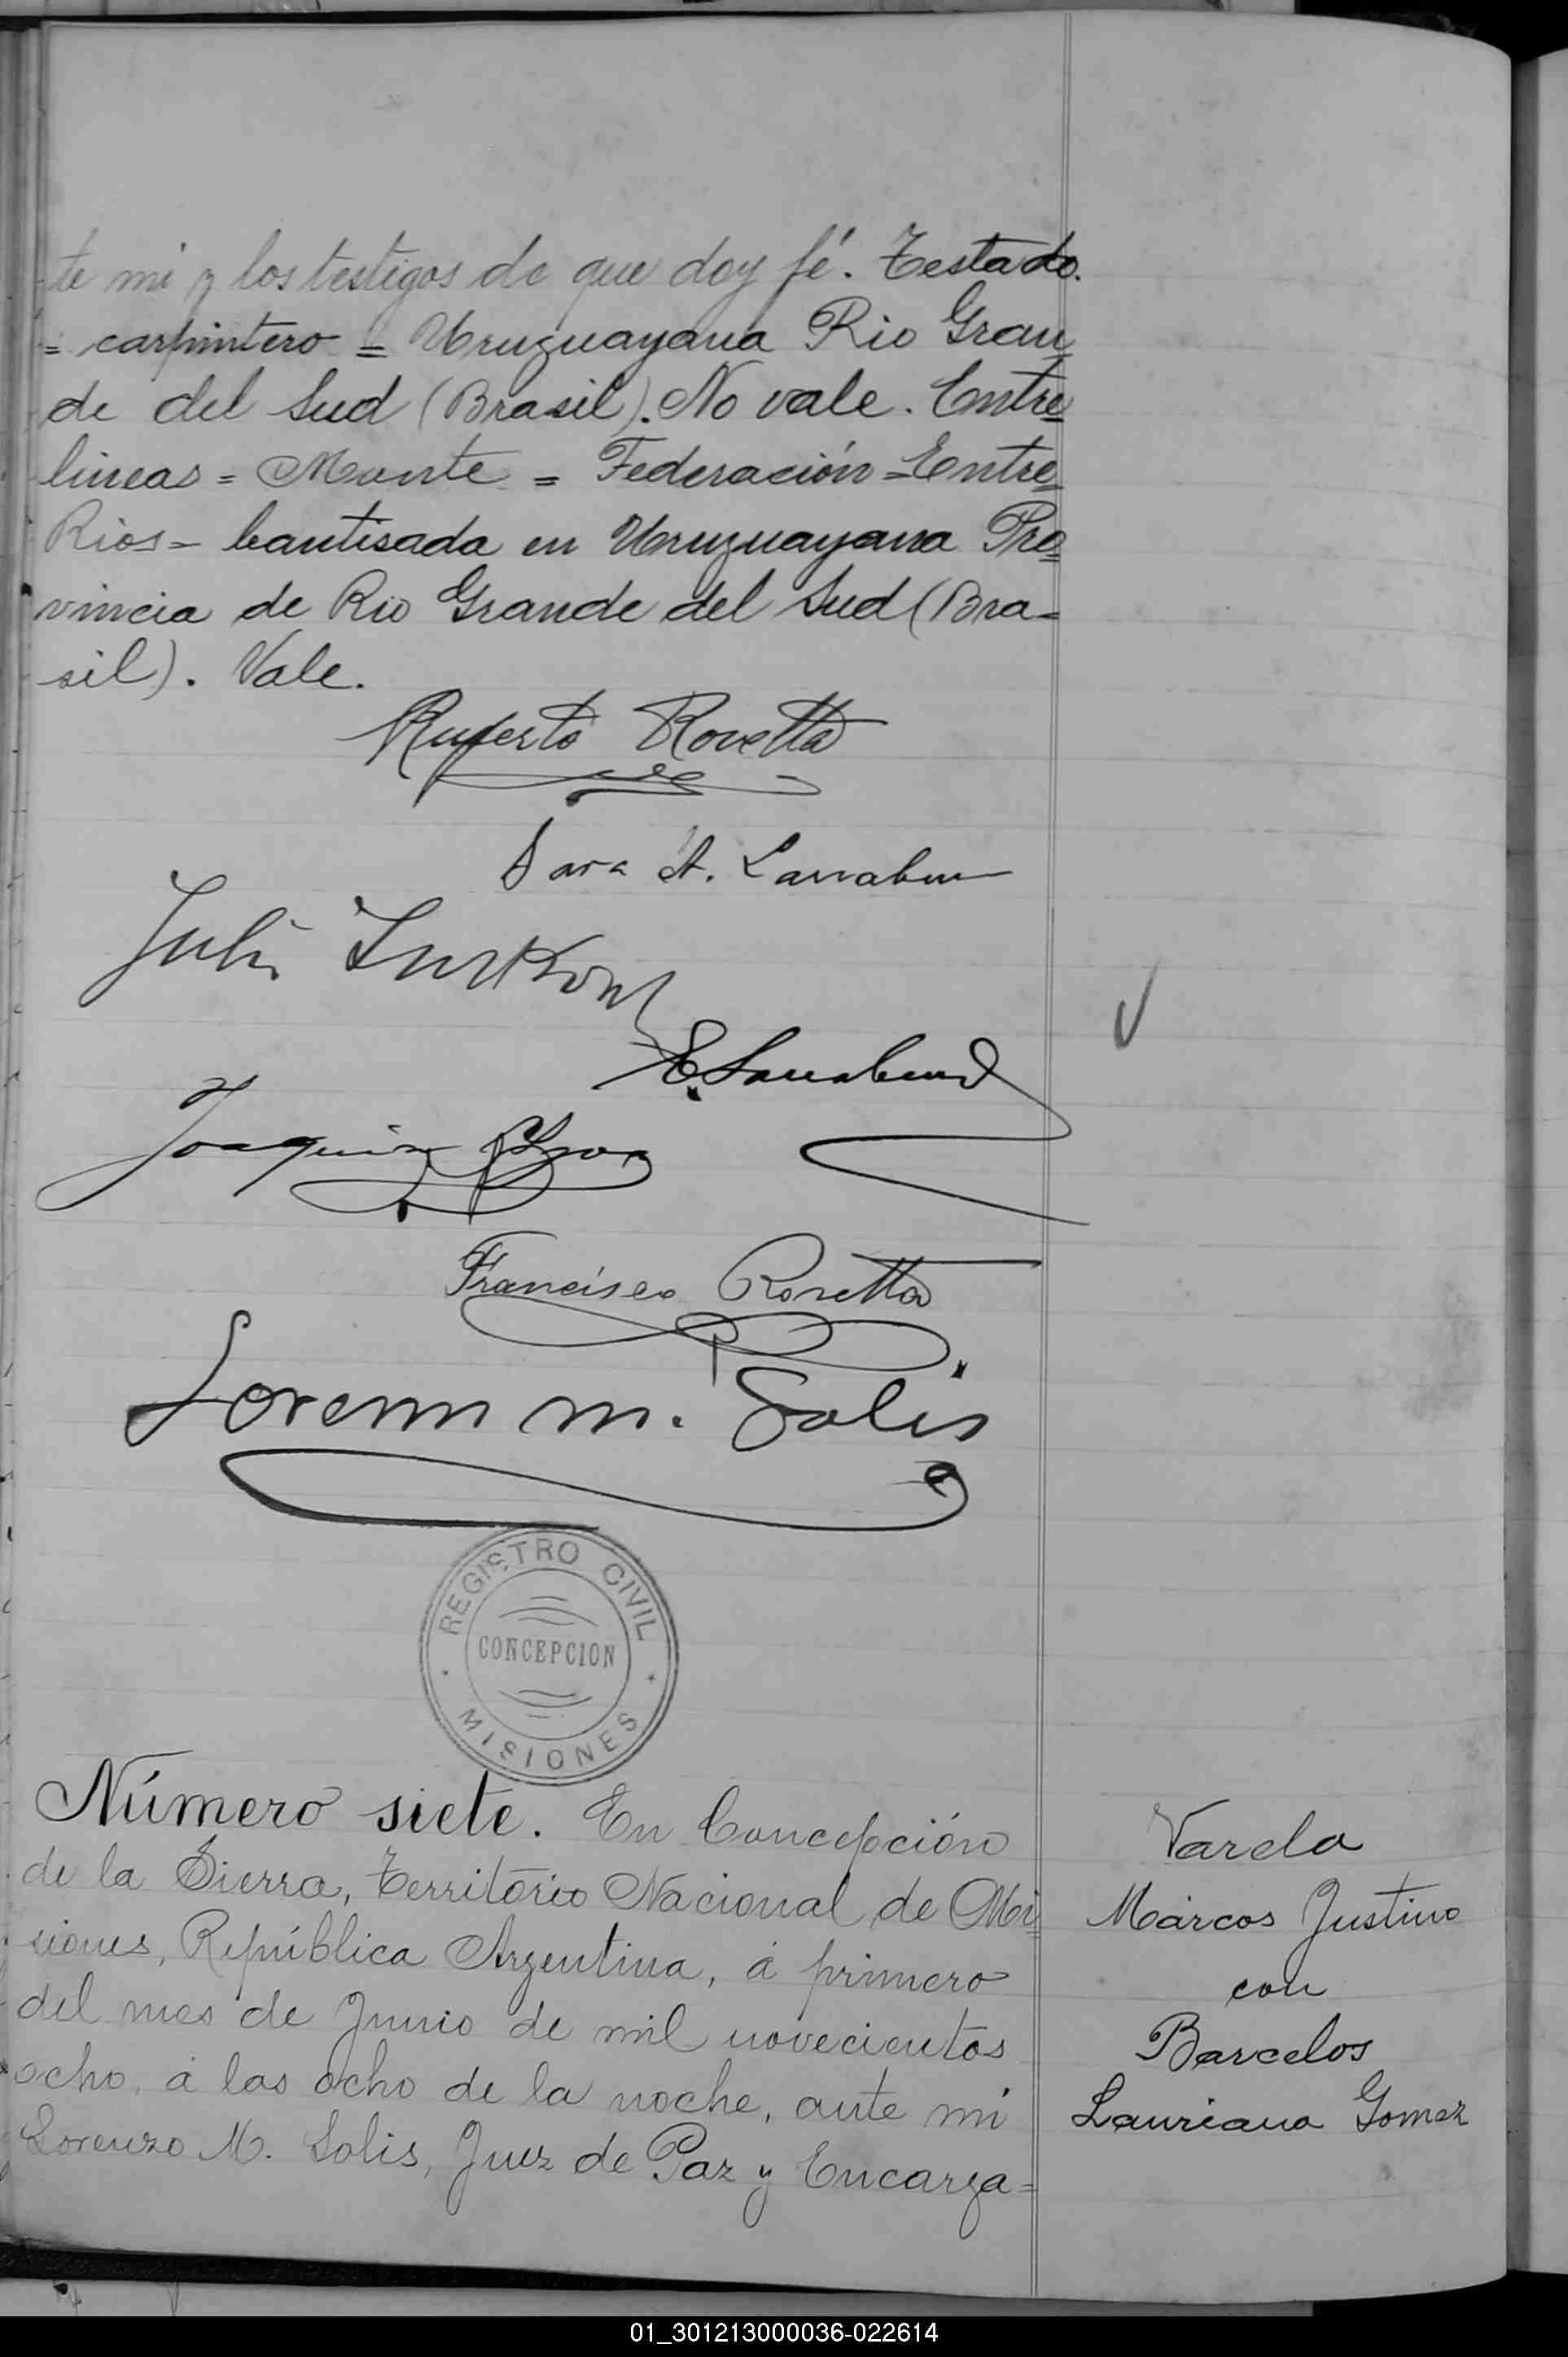 te mi y los testigos de que doy fé. Testado.
= carpintero = Uruguayana Rio Gran=
de del Sud (Brasil). No vale. Entre=
lineas = Monte = Federación = Entre=
Rios = bautisada en Uruguayana Pro=
vincia de Rio Grande del Sud (Bra=
sil). Vale.
Ruperto Rovetta
Sara A.
Julio
E.
Joaquin
Francisco Rovetta
Lorenzo M. Solis
REGISTRO CIVIL
CONCEPCION
MISIONES
Número siete. En Concepción
de la Sierra, Territorio Nacional de Mi=
siones, República Argentina, á primero
del mes de Junio de mil novecientos
ocho, á las ocho de la noche, ante mi
Lorenzo M. Solis, Juez de Paz y Encarga=
Varela
Márcos Justino
con
Barcelos
Lauriana Gomez
01_301213000036-022614